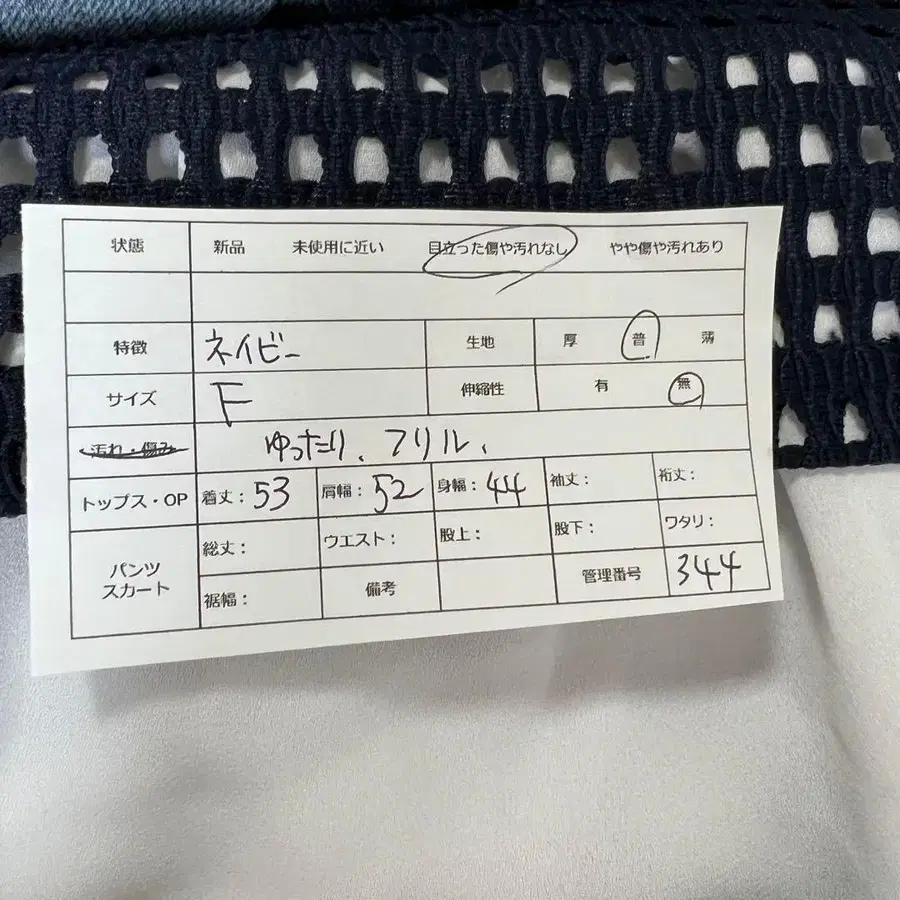 状態 新品 未使用に近い 目立った傷や汚れなし やや傷や汚れあり
特徴 ネイビー 生地 厚 普 薄
サイズ F 伸縮性 有 無
汚れ・傷み ゆったり、フリル、
トップス・OP 着丈：53 肩幅：52 身幅：44 袖丈： 裄丈：
パンツ スカート 総丈： ウエスト： 股上： 股下： ワタリ：
裾幅： 備考 管理番号 344